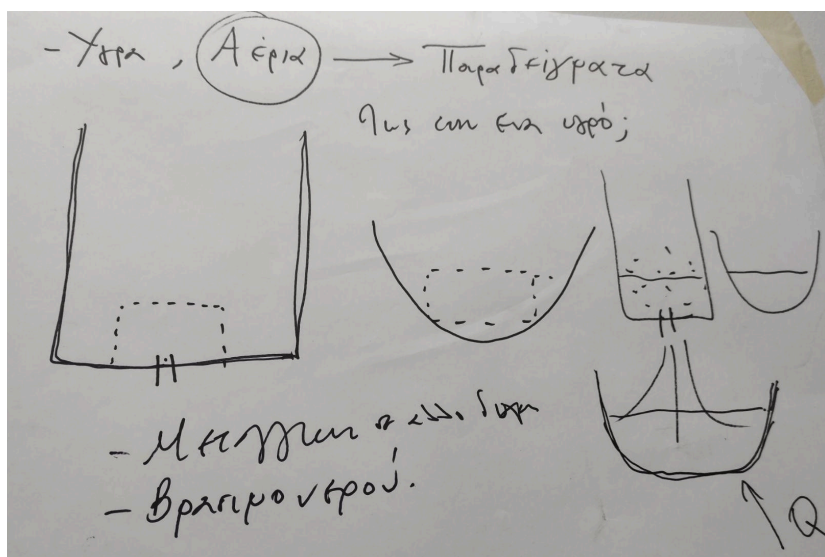 - Υγρα, Αέρια → Παραδείγματα
Πως ένα υγρό;
- Μετάγγιση σε άλλο δοχείο
- Βράσιμο νερού.
Q